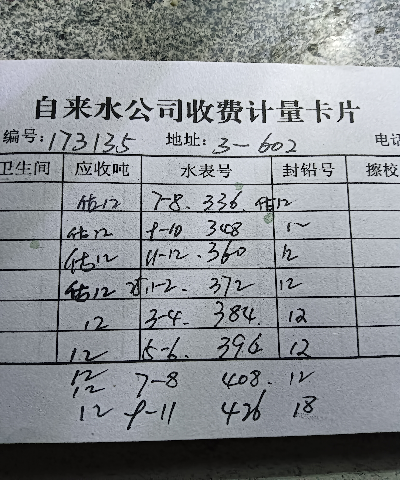 自来水公司收费计量卡片
编号: 173135 地址: 3-602 电话
卫生间 应收吨 水表号 封铅号 擦校
估12 7-8. 336. 估12
估12 9-10 348 12
估12 11-12. 360 12
估12 1-2. 372 12
12 3-4. 384. 12
12 5-6. 396. 12
12 12 7-8 408. 12
12 9-11 426 18